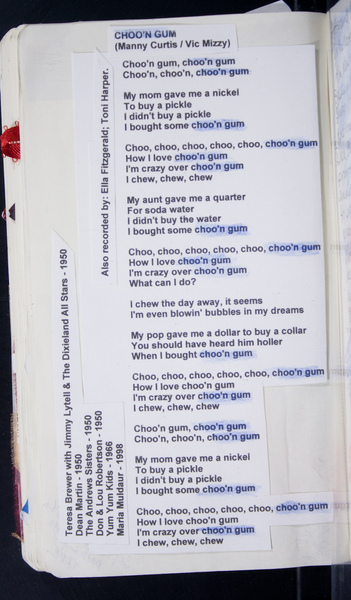 CHOO'N GUM
(Manny Curtis / Vic Mizzy)
Choo'n gum, choo'n gum
Choo'n, choo'n, choo'n gum
My mom gave me a nickel
To buy a pickle
I didn't buy a pickle
I bought some choo'n gum
Choo, choo, choo, choo, choo, choo'n gum
How I love choo'n gum
I'm crazy over choo'n gum
I chew, chew, chew
My aunt gave me a quarter
For soda water
I didn't buy the water
I bought some choo'n gum
Choo, choo, choo, choo, choo, choo'n gum
How I love choo'n gum
I'm crazy over choo'n gum
What can I do?
I chew the day away, it seems
I'm even blowin' bubbles in my dreams
My pop gave me a dollar to buy a collar
You should have heard him holler
When I bought choo'n gum
Choo, choo, choo, choo, choo, choo'n gum
How I love choo'n gum
I'm crazy over choo'n gum
I chew, chew, chew
Choo'n gum, choo'n gum
Choo'n, choo'n, choo'n gum
My mom gave me a nickel
To buy a pickle
I didn't buy a pickle
I bought some choo'n gum
Choo, choo, choo, choo, choo, choo'n gum
How I love choo'n gum
I'm crazy over choo'n gum
I chew, chew, chew
Also recorded by: Ella Fitzgerald; Toni Harper.
Teresa Brewer with Jimmy Lytell & The Dixieland All Stars - 1950
Dean Martin - 1950
The Andrews Sisters - 1950
Don & Lou Robertson - 1950
Yum Yum Kids - 1966
Maria Muldaur - 1998